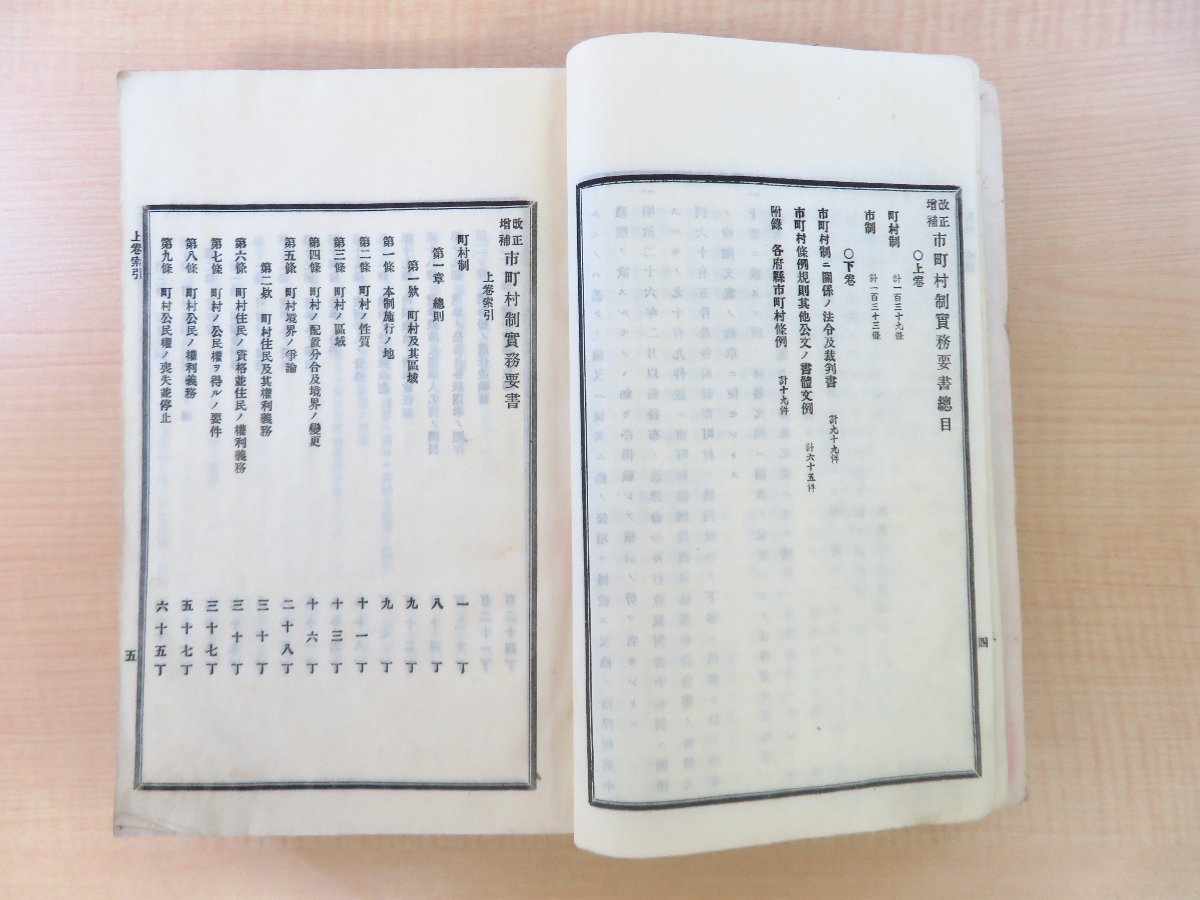 改正增補 市町村制實務要書總目
〇上卷
町村制 計一百三十九條
市制 計一百三十三條
〇下卷
市町村制ニ關係ノ法令及裁判書 計九十九件
市町村條例規則其他公文ノ書體文例 計六十五件
附錄 各府縣市町村條例 計十九件
四
改正增補 市町村制實務要書
上卷索引
町村制 一丁
第一章 總則 八丁
第一欵 町村及其區域 九丁
第一條 本制施行ノ地 九丁
第二條 町村ノ性質 十一丁
第三條 町村ノ區域 十三丁
第四條 町村ノ配置分合及境界ノ變更 十六丁
第五條 町村境界ノ爭論 二十八丁
第二欵 町村住民及其權利義務 三十丁
第六條 町村住民ノ資格並住民ノ權利義務 三十丁
第七條 町村ノ公民權ヲ得ルノ要件 三十七丁
第八條 町村公民ノ權利義務 五十七丁
第九條 町村公民權ノ喪失並停止 六十五丁
上卷索引
五